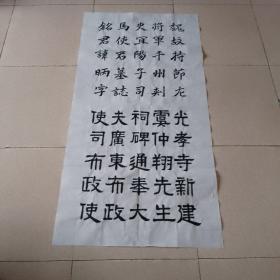 魏故持節左
將軍平州刺
史宜陽子司
馬使君墓誌
銘君諱昞字
光孝寺新建
虞仲翔先生
祠碑通奉大
夫廣東布政
使司布政使